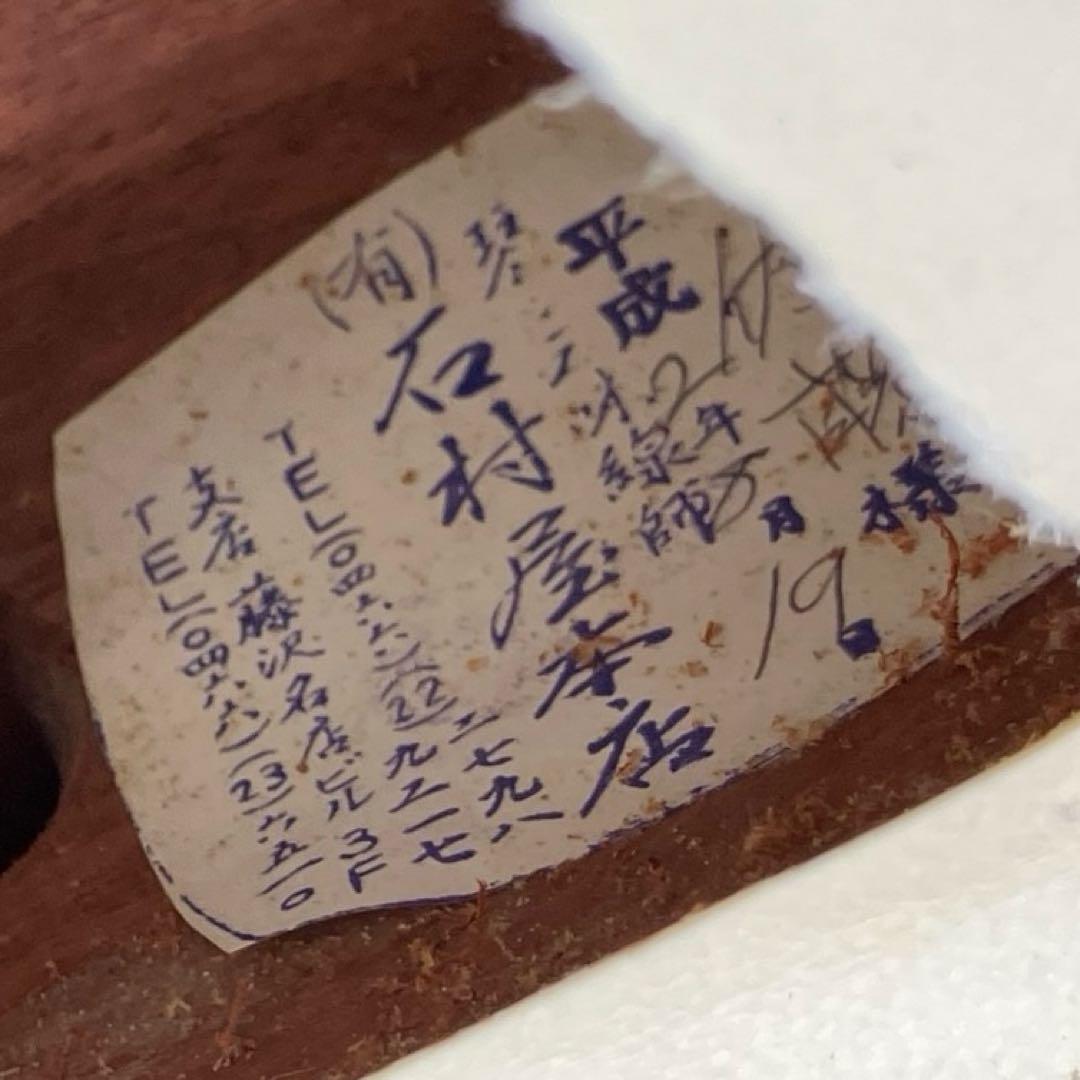 様
平成2年5月19日
琴・三味線師
(有)石村屋本店
TEL〇四六六(22)二七九八
九二一七
支店 藤沢名店ビル3F
TEL〇四六六(23)六五一〇